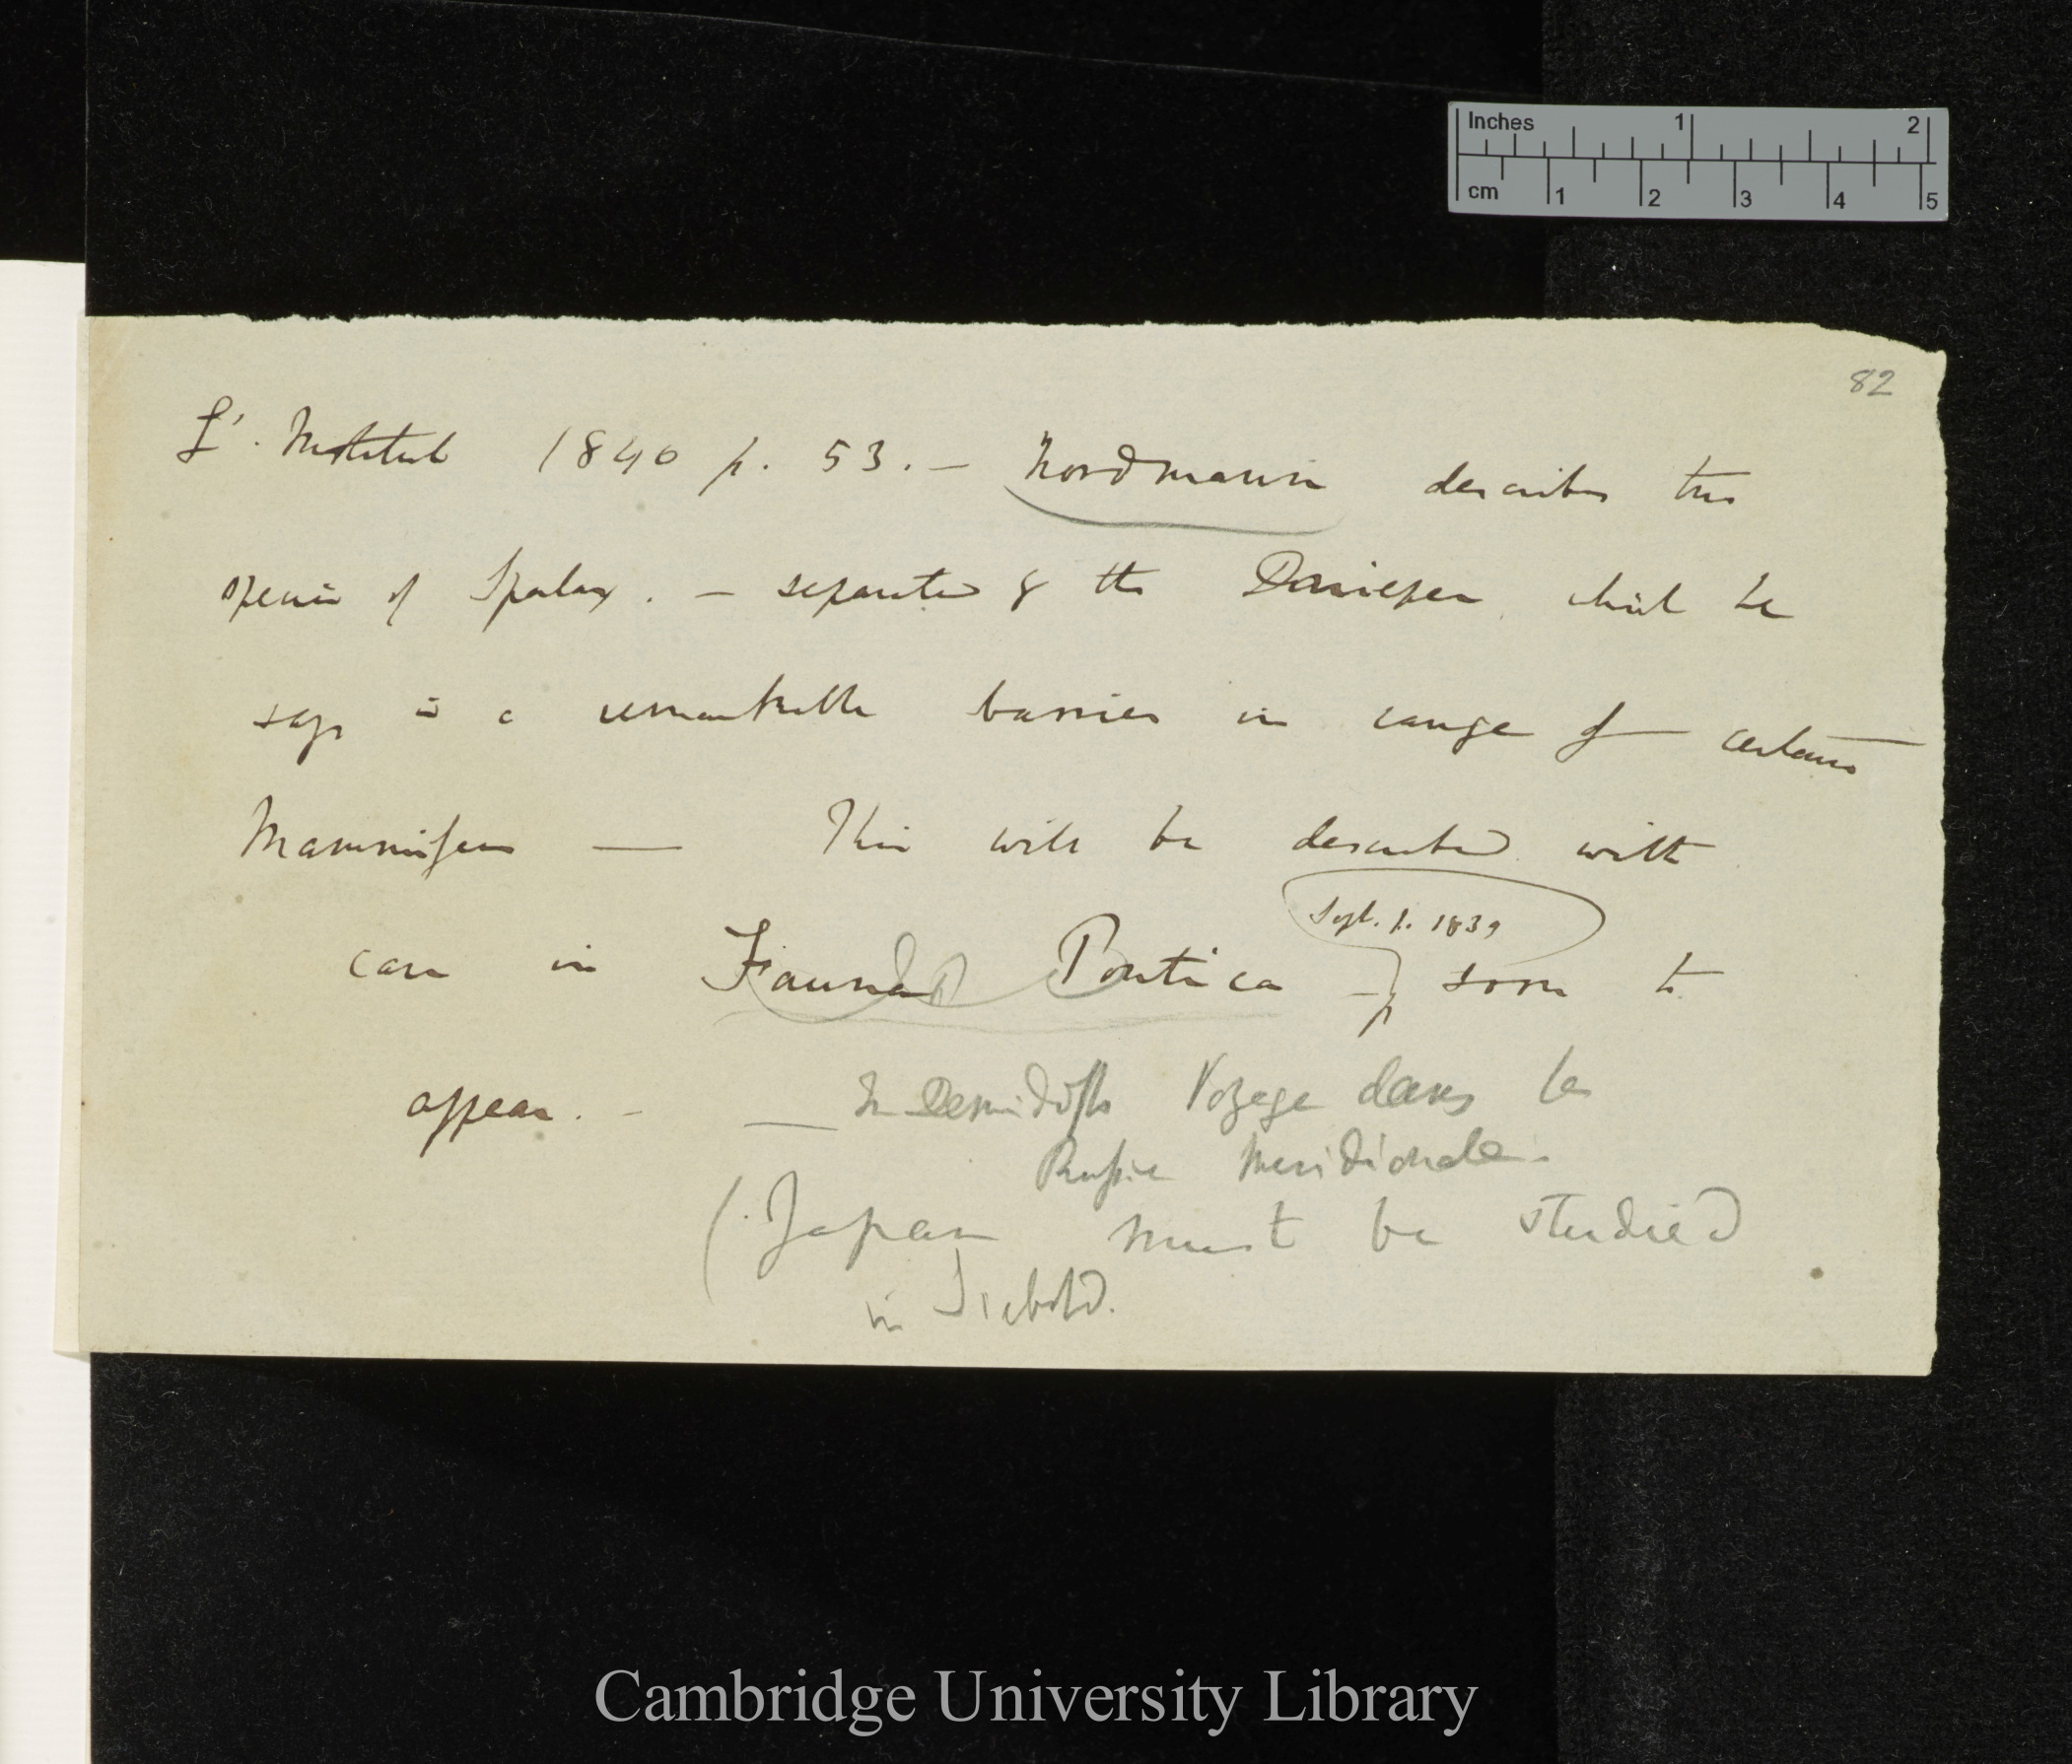 Inches 1 2
cm 1 2 3 4 5
82
L'. Institut 1840 p. 53. — Nordmann describes two
species of Spalax. — separated by the Dnieper which he
says is a remarkable barrier in range of certain
Mammifers — This will be described with
Sept. p. 1839
care in Fauna Pontica — soon to
appear. — — In Demidoff's Voyage dans la
Russie Meridionale.
(Japan must be studied
in Siebold.
Cambridge University Library